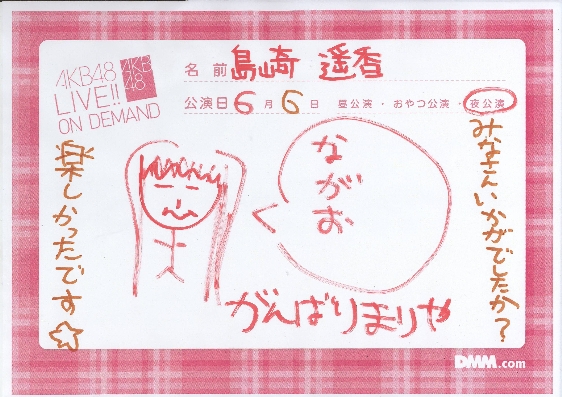 AKB48
LIVE!!
ON DEMAND
AKB
48
名前 島崎 遥香
公演日 6月 6日 昼公演・おやつ公演・夜公演
みなさんいかがでしたか?
ながお
がんばりまりや
楽しかったです☆
DMM.com